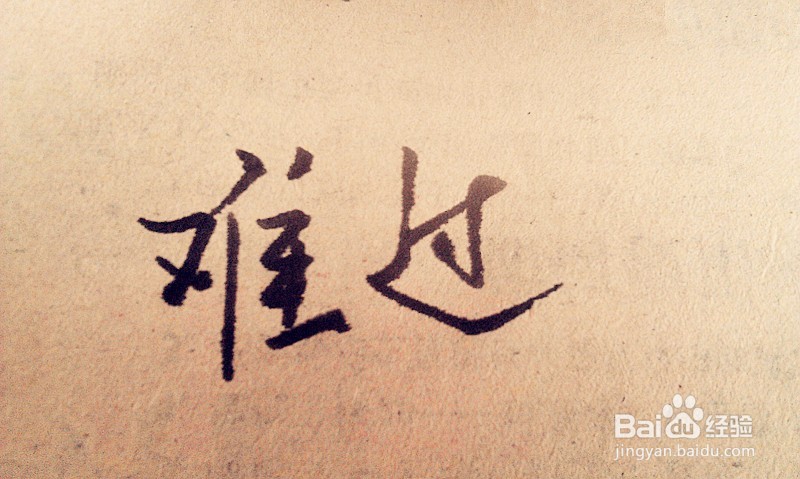 难过
Baidu经验
jingyan.baidu.com